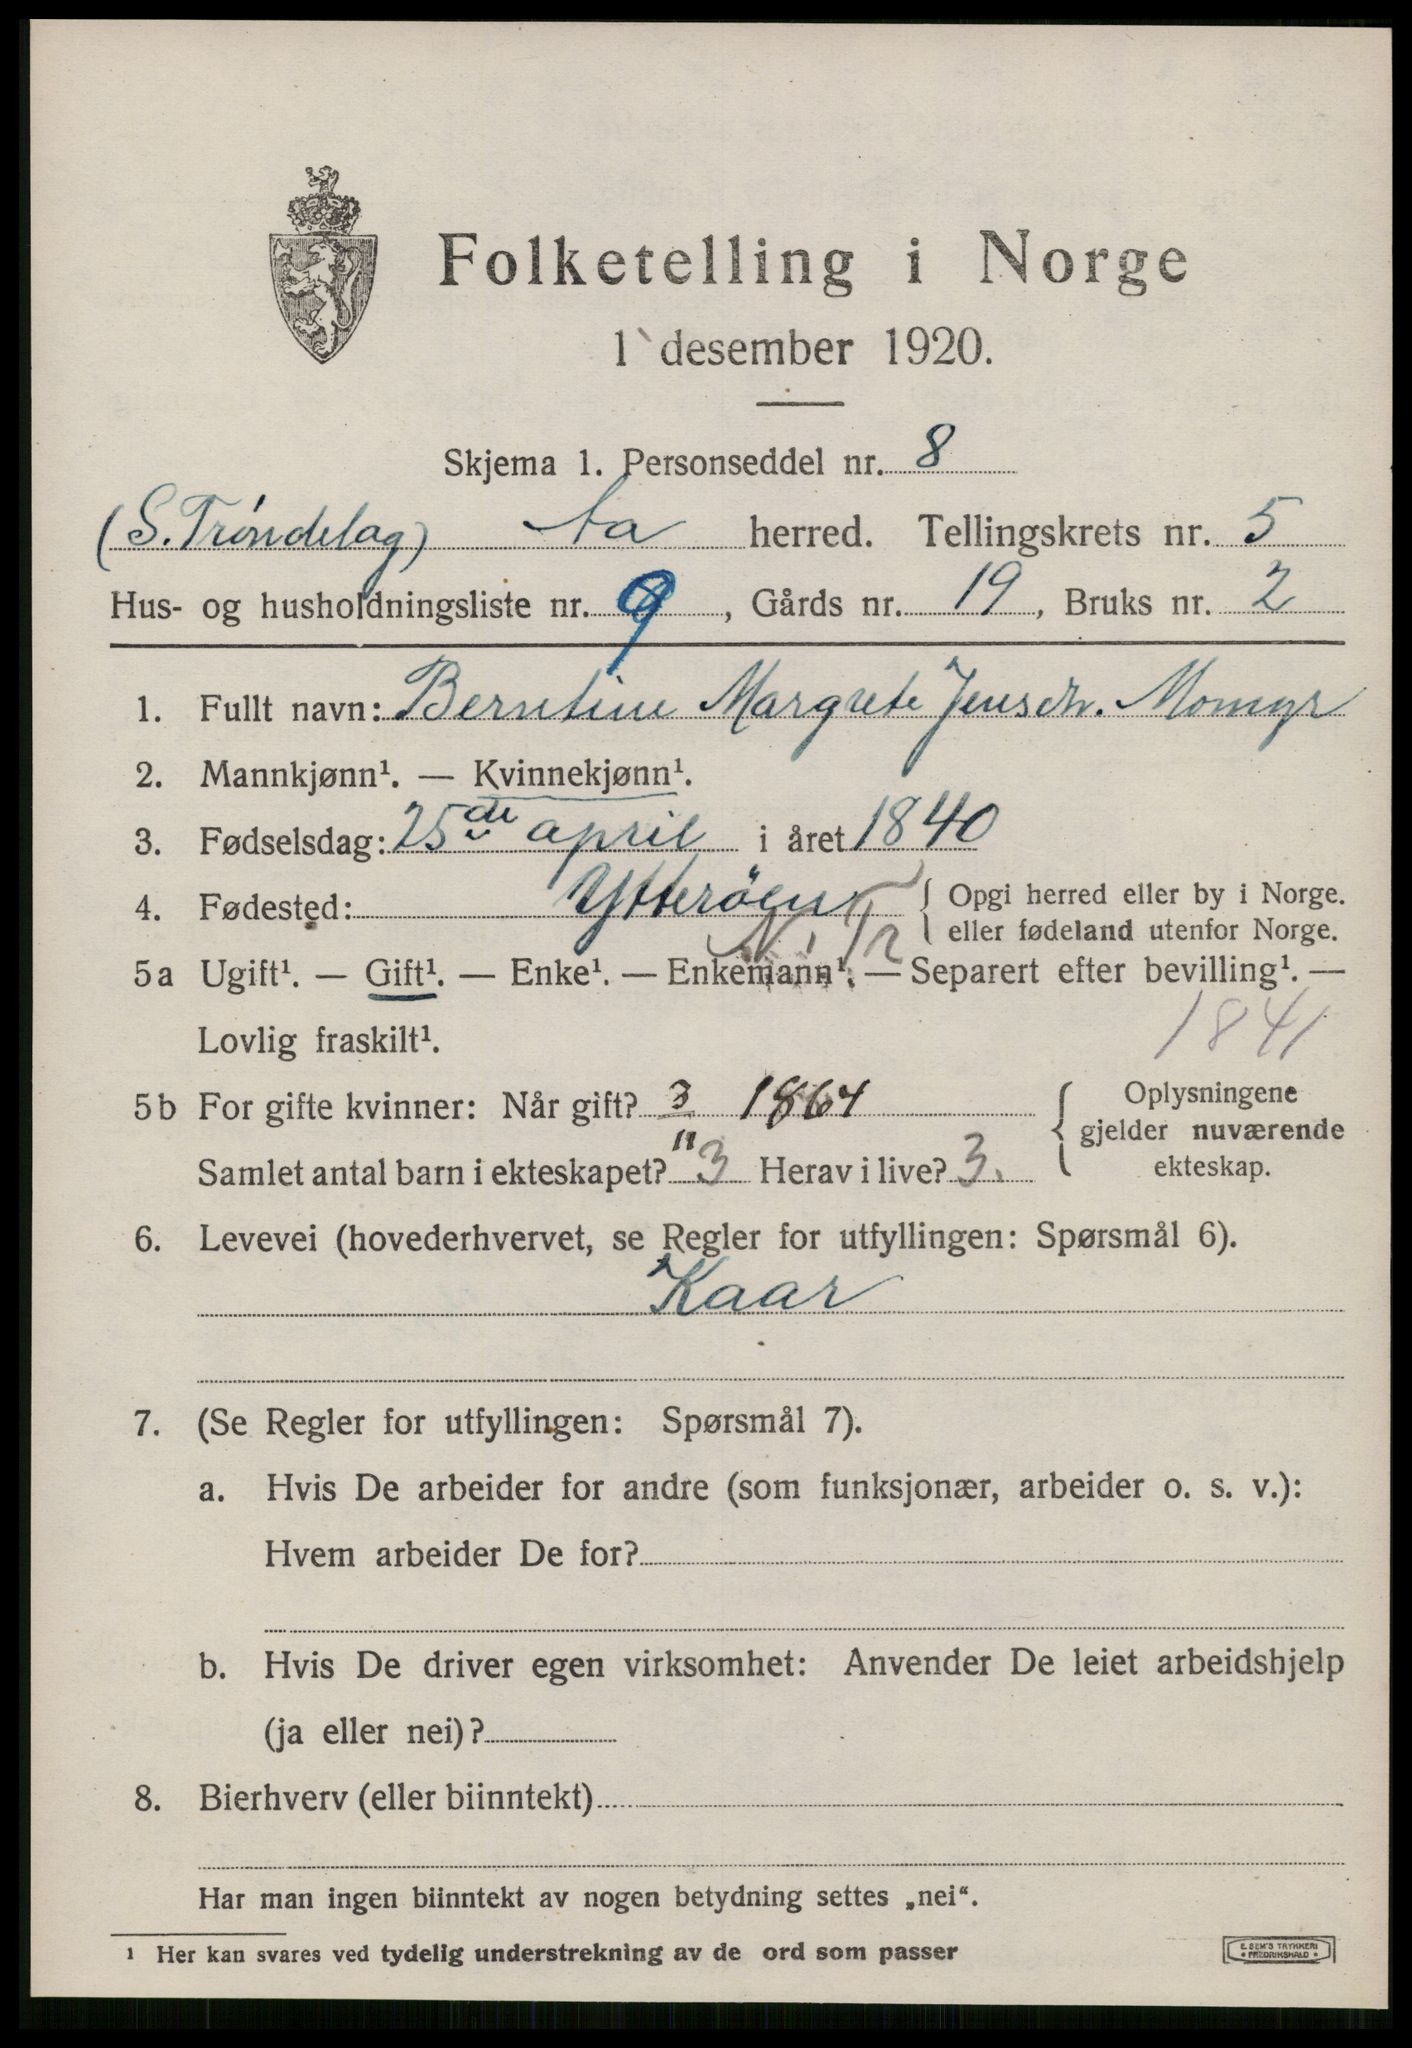 Folketelling i Norge
1 desember 1920.
Skjema 1. Personseddel nr. 8
(S. Trøndelag) Aa herred. Tellingskrets nr. 5
Hus- og husholdningsliste nr. 9, Gårds nr. 19, Bruks nr. 2
1. Fullt navn: Berntine Margrete Jensdtr. Momyr
2. Mannkjønn¹. — Kvinnekjønn¹.
3. Fødselsdag: 25de april i året 1840
4. Fødested: Ytteröen { Opgi herred eller by i Norge.
N. Tr { eller fødeland utenfor Norge.
5a Ugift¹. — Gift¹. — Enke¹. — Enkemann¹. — Separert efter bevilling¹. —
Lovlig fraskilt¹. 1841
5b For gifte kvinner: Når gift? 3/11 1864 { Oplysningene
gjelder nuværende
Samlet antal barn i ekteskapet? 3 Herav i live? 3. ekteskap.
6. Levevei (hovederhvervet, se Regler for utfyllingen: Spørsmål 6).
Kaar
7. (Se Regler for utfyllingen: Spørsmål 7).
a. Hvis De arbeider for andre (som funksjonær, arbeider o. s. v.):
Hvem arbeider De for?
b. Hvis De driver egen virksomhet: Anvender De leiet arbeidshjelp
(ja eller nei)?
8. Bierhverv (eller biinntekt)
Har man ingen biinntekt av nogen betydning settes „nei“.
¹ Her kan svares ved tydelig understrekning av de ord som passer
E. SEM'S TRYKKERI
* FREDRIKSHALD *